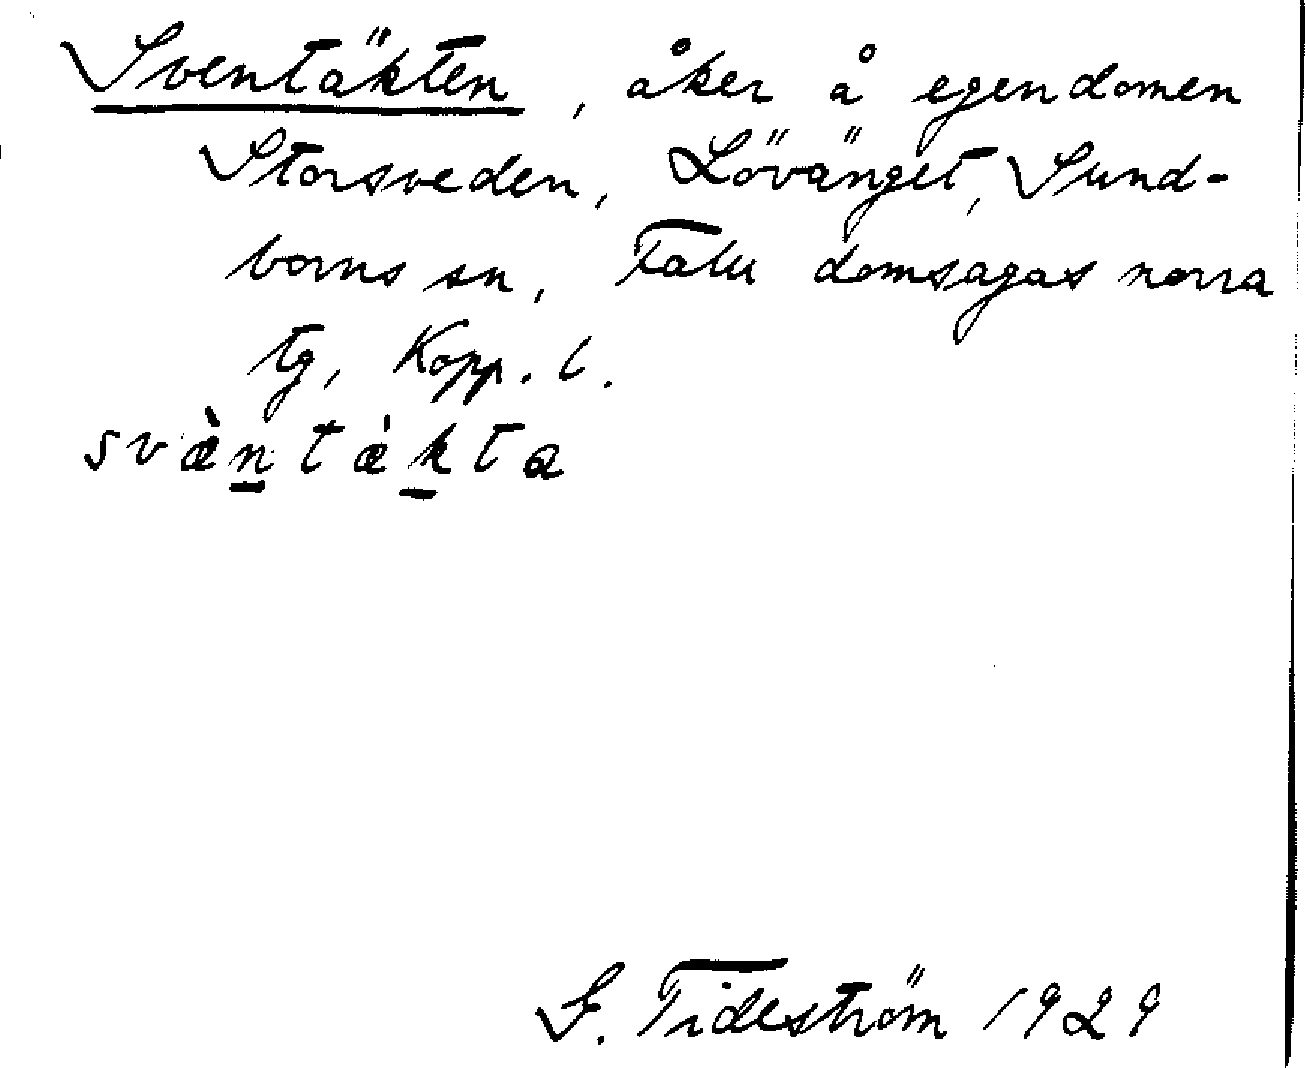 Sventäkten, åker å egendomen
Storsveden, Lövänget, Sund-
borns sn, Falu domsagas norra
tg, Kopp. l.
svæ̀n̲tæ̍k̲ta
G. Tideström 1929